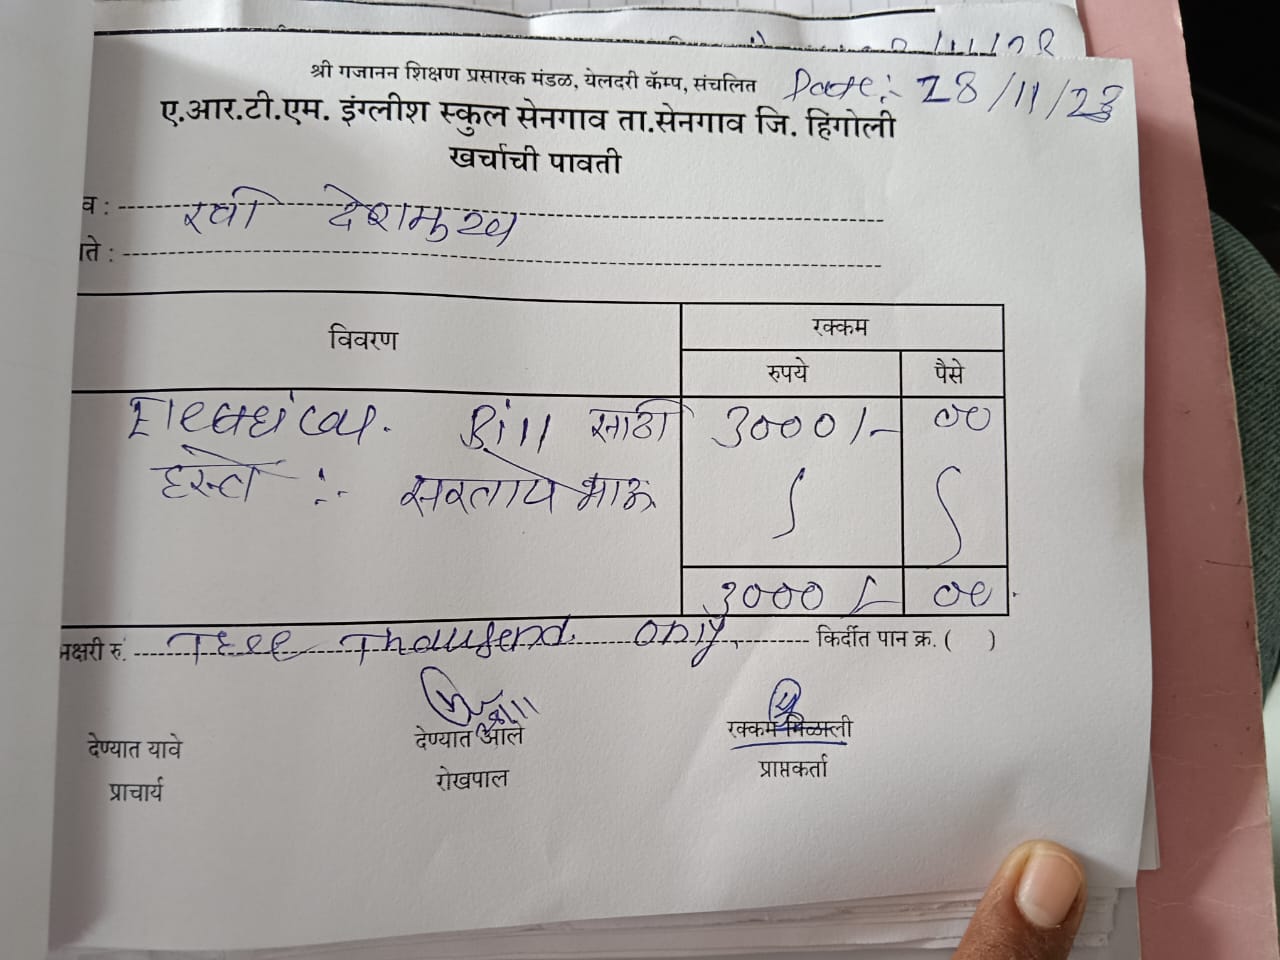 श्री गजानन शिक्षण प्रसारक मंडळ, येलदरी कॅम्प, संचलित Date:- 28/11/23
ए.आर.टी.एम. इंग्लीश स्कुल सेनगाव ता.सेनगाव जि. हिंगोली
खर्चाची पावती
व : रवी देशमुख
ाते :
विवरण रक्कम
रुपये पैसे
Electrical. Bill साठी 3000/- 00
हस्ते :- भाऊ
3000/- 00
नक्षरी रुं. Three Thousend. only, किर्दीत पान क्र. ( )
देण्यात यावे देण्यात आले रक्कम मिळाली
प्राचार्य रोखपाल प्राप्तकर्ता